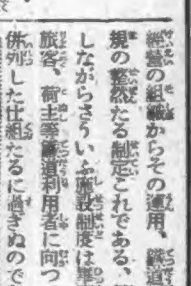 經營の組織からその運用、鐵道
規の整然たる制定これである、
しながらさういふ施設制度は單
旅客、荷主等鐵道利用者に向つ
併列した仕組たるに過ぎぬので